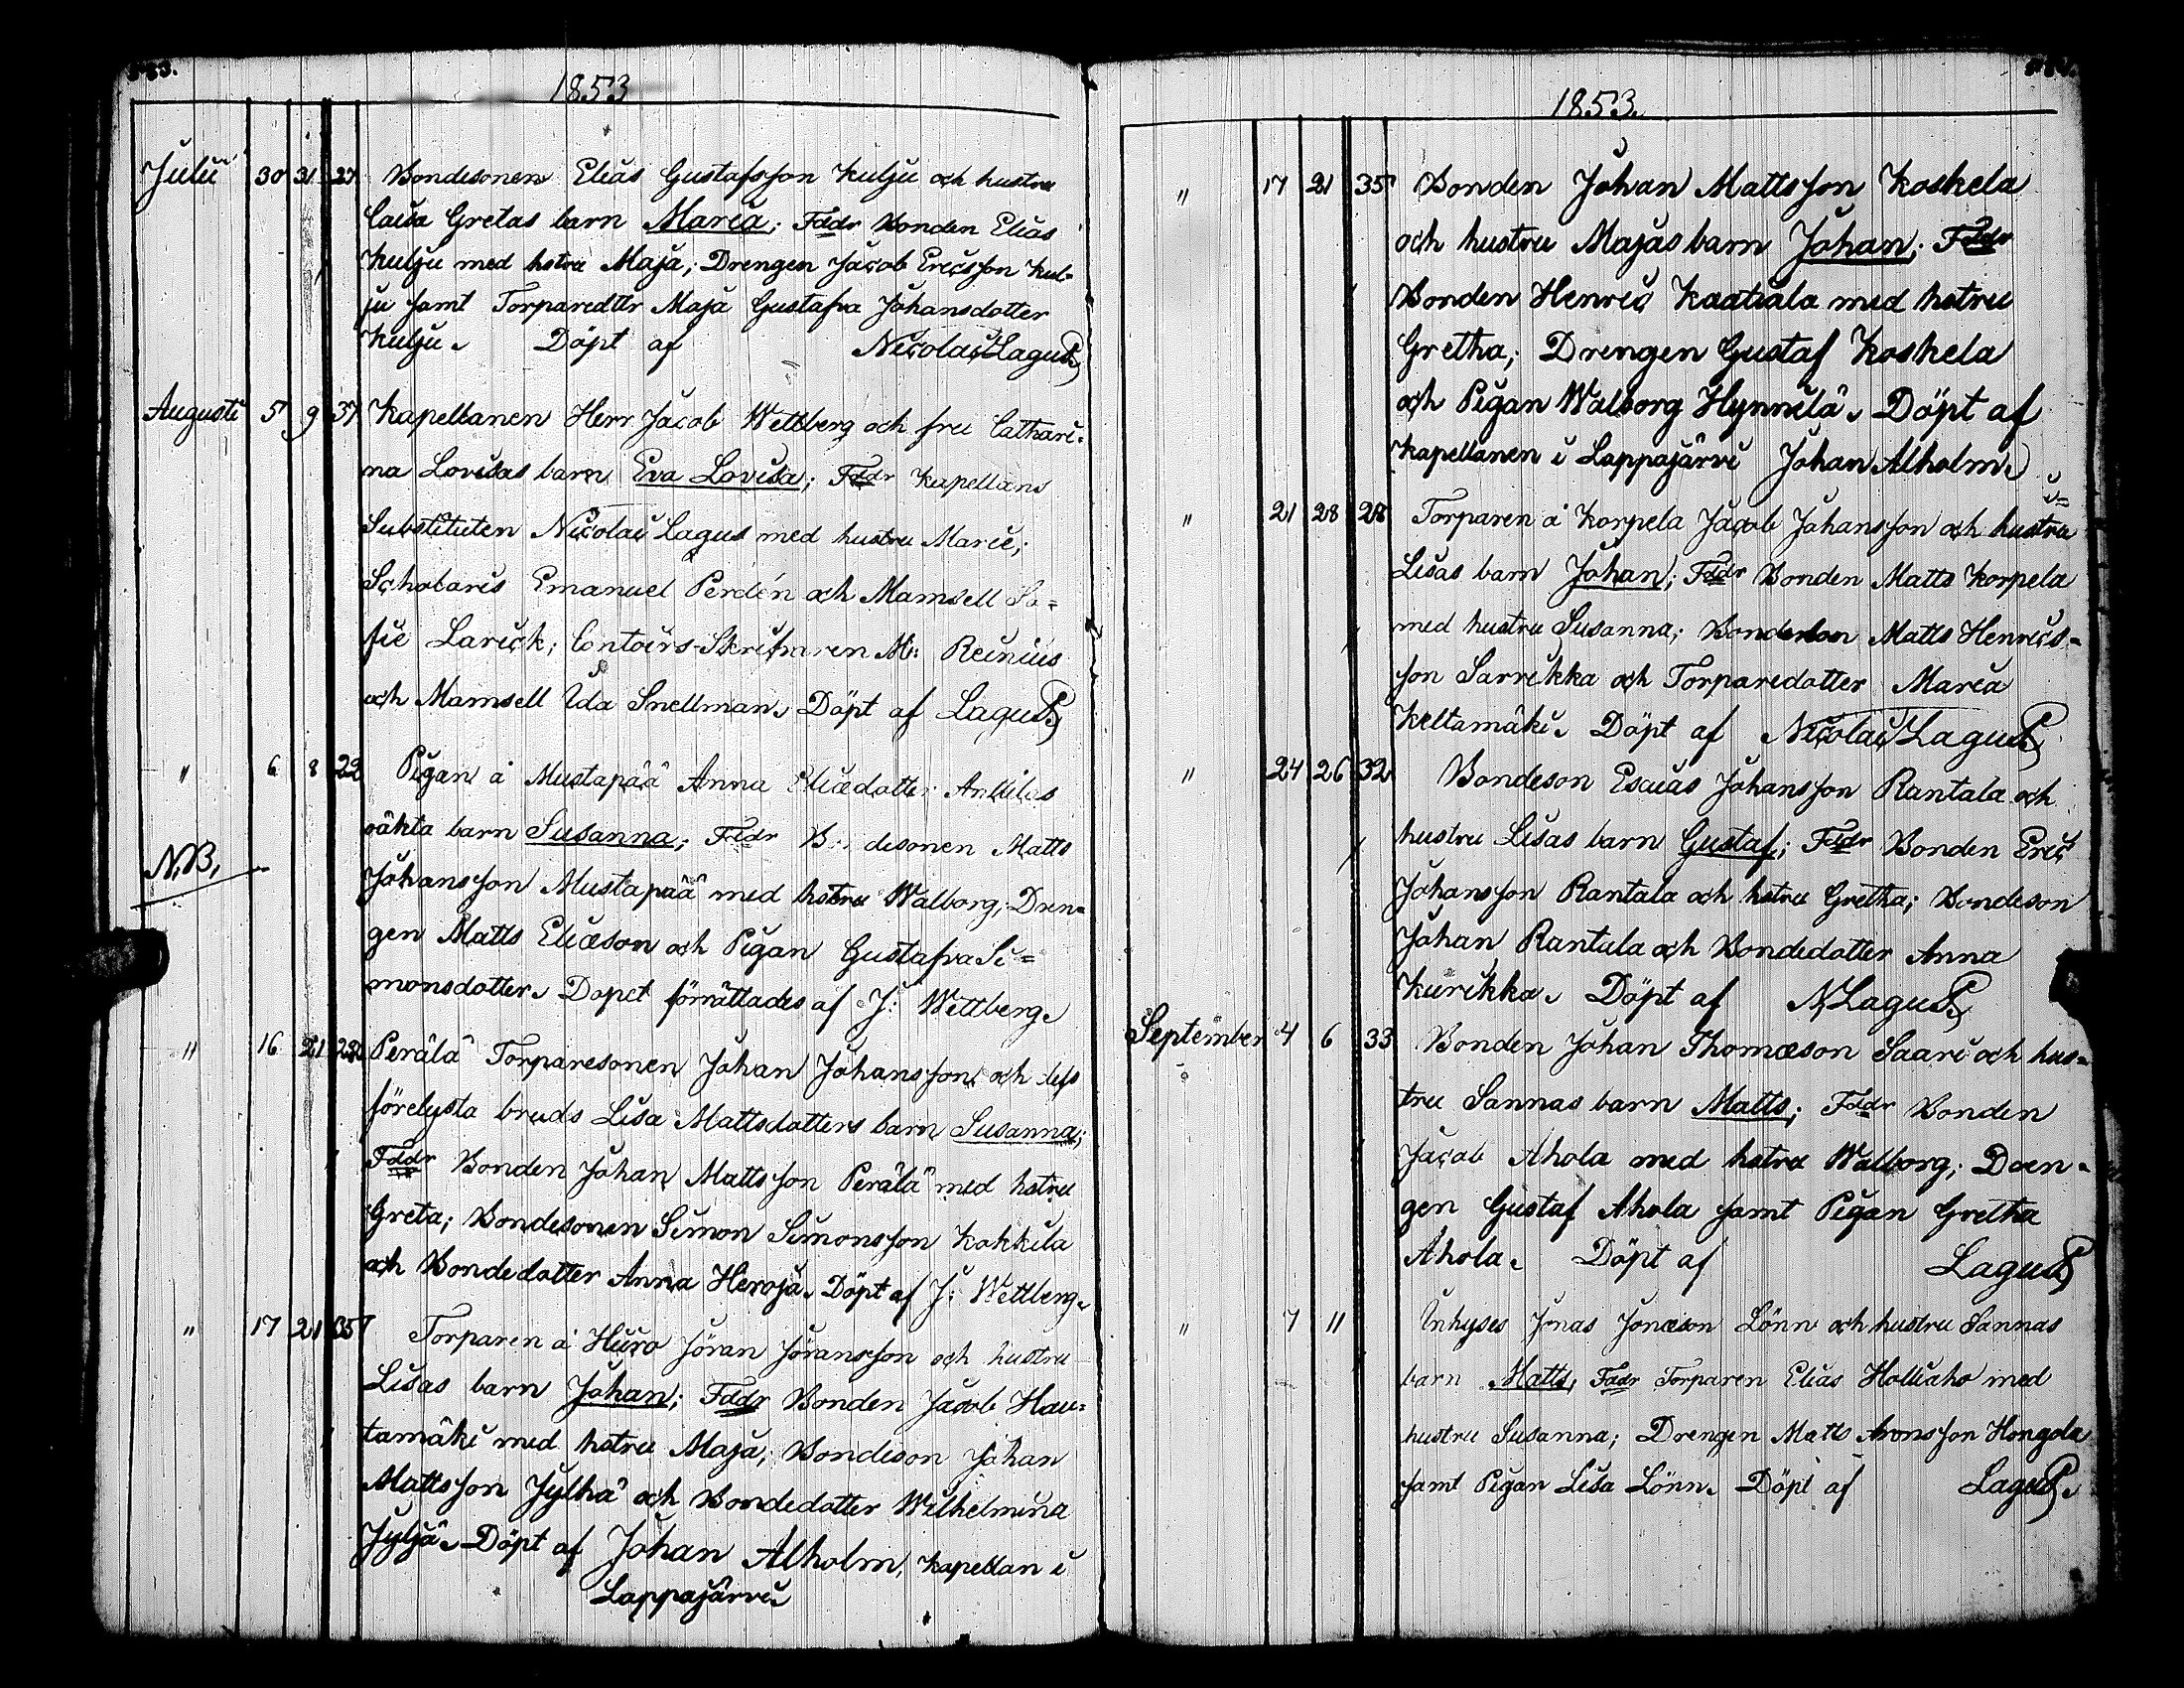 1853
Julii 30 31 27 Bondesonen Elias Gustafsson Kulju och hustru
Caisa Gretas barn Maria; Fddr Bonden Elias
Kulju med hstru Maja; Drengen Jacob Ericsson Kul-
ju samt Torparedttr Maja Gustafva Johansdotter
Kulju. Döpt af Nicolai Lagus
Augusti 5 9 37 Kapellanen Herr Jacob Wettberg och fru Cathari-
na Lovisas barn Eva Lovisa; Fddr Kapellans
Substituten Nicolai Lagus med hustru Marie;
Scholaris Emanuel Perdén och Mamsell So=
fie Larick; Contoirs-Skrifvaren M: Reinius
och Mamsell Ida Snellman. Döpt af Lagus
" 6 8 22 Pigan å Mustapää Anna Eliædotter Anttilas
oäkta barn Susanna; Fddr Bondesonen Matts
N.B. Johansson Mustapää med hstru Walborg; Dren-
gen Matts Eliæson och Pigan Gustafva Si=
monsdotter. Dopet förrättades af J: Wettberg.
" 16 21 22 Perälä Torparesonen Johan Johansson och dess
förelysta bruds Lisa Mattsdotters barn Susanna;
Fddr Bonden Johan Mattsson Perälä med hstru
Greta; Bondesonen Simon Simonsson Kokkila
och Bondedotter Anna Heroja. Döpt af J: Wettberg.
" 17 21 35 Torparen å Huro Jöran Jöransson och hustru
Lisas barn Johan; Fddr Bonden Jacob Hau-
tamäki med hstru Maja; Bondeson Johan
Mattsson Jylhä och Bondedotter Wilhelmina
Jyljä. Döpt af Johan Alholm, Kapellan i
Lappajärvi.
1853.
" 17 21 35 Bonden Johan Mattsson Koskela
och hustru Majas barn Johan; Fddr
Bonden Henric Kaatiala med hstru
Gretha; Drengen Gustaf Koskela
och Pigan Walborg Hynnilä. Döpt af
Kapellanen i Lappajärvi Johan Alholm.
" 21 28 28 Torparen å Korpela Jacob Johansson och hustru
Lisas barn Johan; Fddr Bonden Matts Korpela
med hustru Susanna; Bondeson Matts Henrics-
son Sarvikka och Torparedotter Maria
Keltamäki. Döpt af Nicolai Lagus
" 24 26 32 Bondeson Esaias Johansson Rantala och
hustru Lisas barn Gustaf; Fddr Bonden Eric
Johansson Rantala och hstru Gretha; Bondeson
Johan Rantala och Bondedotter Anna
Kurikka. Döpt af N Lagus
September 4 6 33 Bonden Johan Thomæson Saari och hus-
tru Sannas barn Matts; Fddr Bonden
Jacob Ahola med hstru Walborg; Dren-
gen Gustaf Ahola samt Pigan Gretha
Ahola. Döpt af Lagus
" 7 11 Inhyses Jonas Jonæson Lönn och hustru Sannas
barn Matts; Fddr Torparen Elias Holliaho med
hustru Susanna; Drengen Matts Aronsson Hongola
samt Pigan Lisa Lönn. Döpt af Lagus.